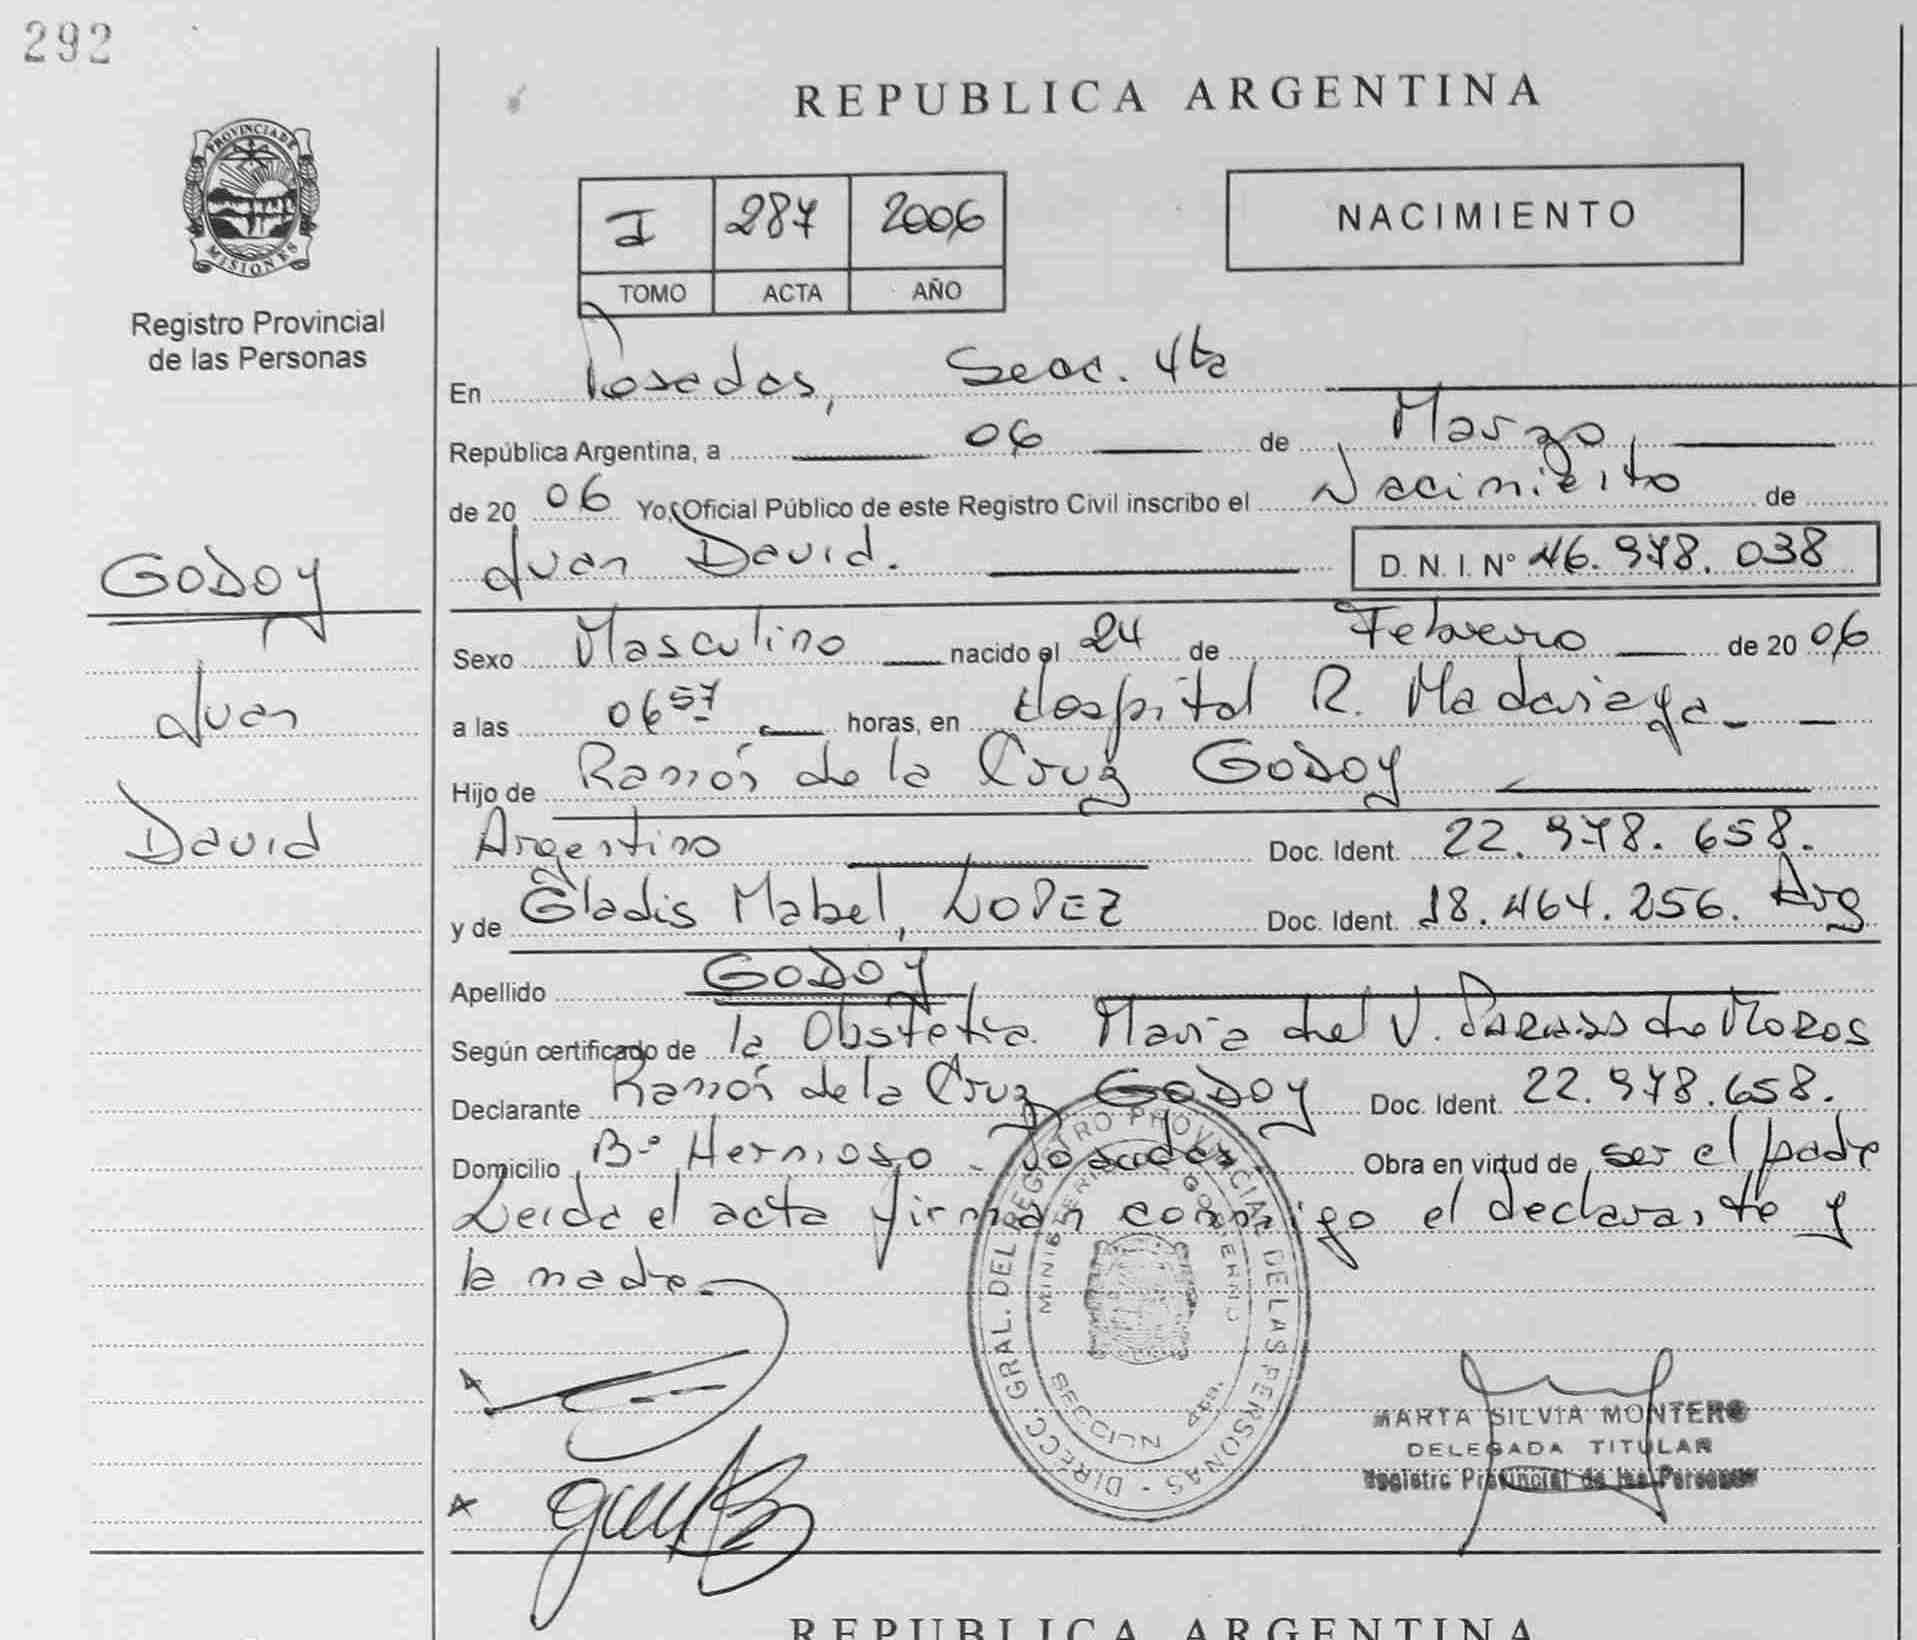 292
REPUBLICA ARGENTINA
PROVINCIA DE MISIONES
Registro Provincial
de las Personas
I 287 2006
TOMO ACTA AÑO
NACIMIENTO
En Posadas, Secc. 4ta
República Argentina, a 06 de Marzo
de 2006 Yo, Oficial Público de este Registro Civil inscribo el Nacimiento de
Juan David. D.N.I. Nº 46.978.038
GODOY
Juan
David
Sexo Masculino nacido el 24 de Febrero de 2006
a las 06 57 horas, en Hospital R. Madariaga
Hijo de Ramón de la Cruz GODOY
Argentino Doc. Ident. 22.978.658.
y de Gladis Mabel, LOPEZ Doc. Ident. 18.464.256. Arg
Apellido GODOY
Según certificado de la Obstetra. María del V. de MOROS
Declarante Ramón de la Cruz GODOY Doc. Ident. 22.978.658.
Domicilio Bº Hermoso - Posadas. Obra en virtud de ser el padre
Leida el acta firman conmigo el declarante y
la madre
DIRECC. GRAL. DEL REGISTRO PROVINCIAL DE LAS PERSONAS
MINISTERIO GOBIERNO
SECCION 4ta.
MARTA SILVIA MONTERO
DELEGADA TITULAR
Registro Provincial de las Personas
REPUBLICA ARGENTINA